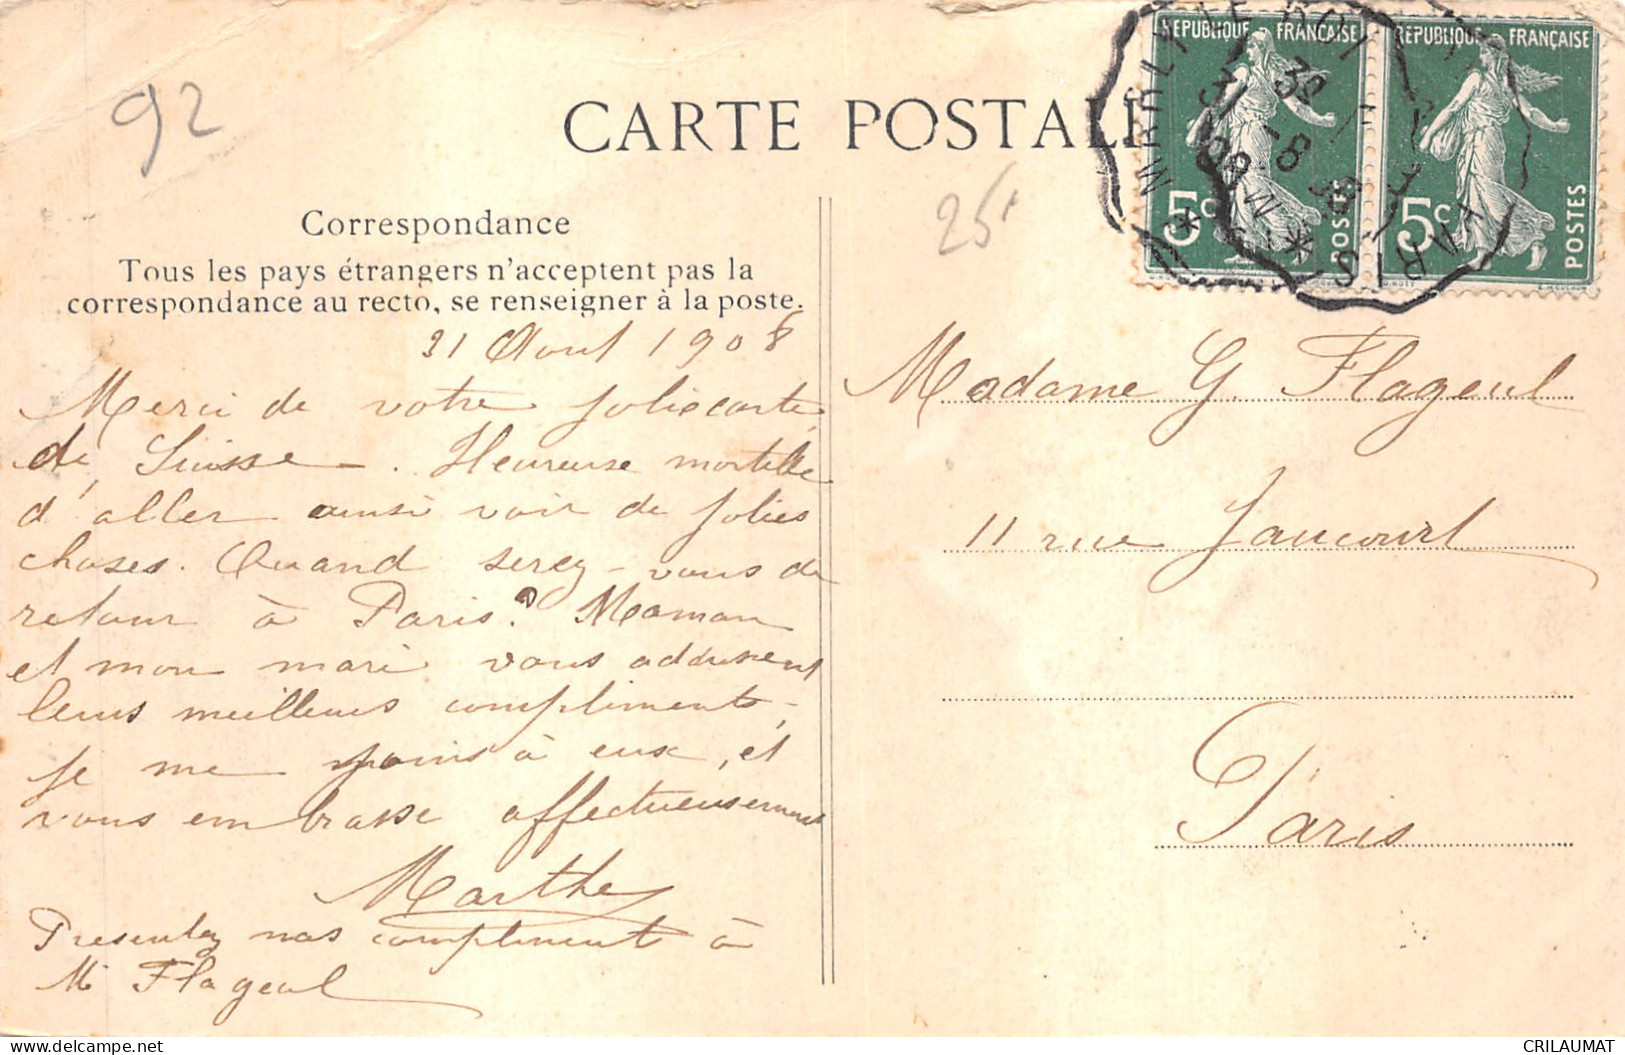 92
CARTE POSTALE
25f
RÉPUBLIQUE FRANÇAISE
5c
POSTES
RÉPUBLIQUE FRANÇAISE
5c
POSTES
MARLY LE ROI
PARIS
31 -8 08
Correspondance
Tous les pays étrangers n'acceptent pas la
correspondance au recto, se renseigner à la poste.
31 Aout 1908
Merci de votre jolie carte
de Suisse. Heureuse mortelle
d'aller ainsi voir de jolies
choses. Quand serez-vous de
retour à Paris? Maman
et mon mari vous adressent
leurs meilleurs compliments,
je me joins à eux, et
vous embrasse affectueusement
Marthe
Presentez nos compliments à
Mr Flageul
Madame G. Flageul
11 rue Jaucourt
Paris
CRILAUMAT